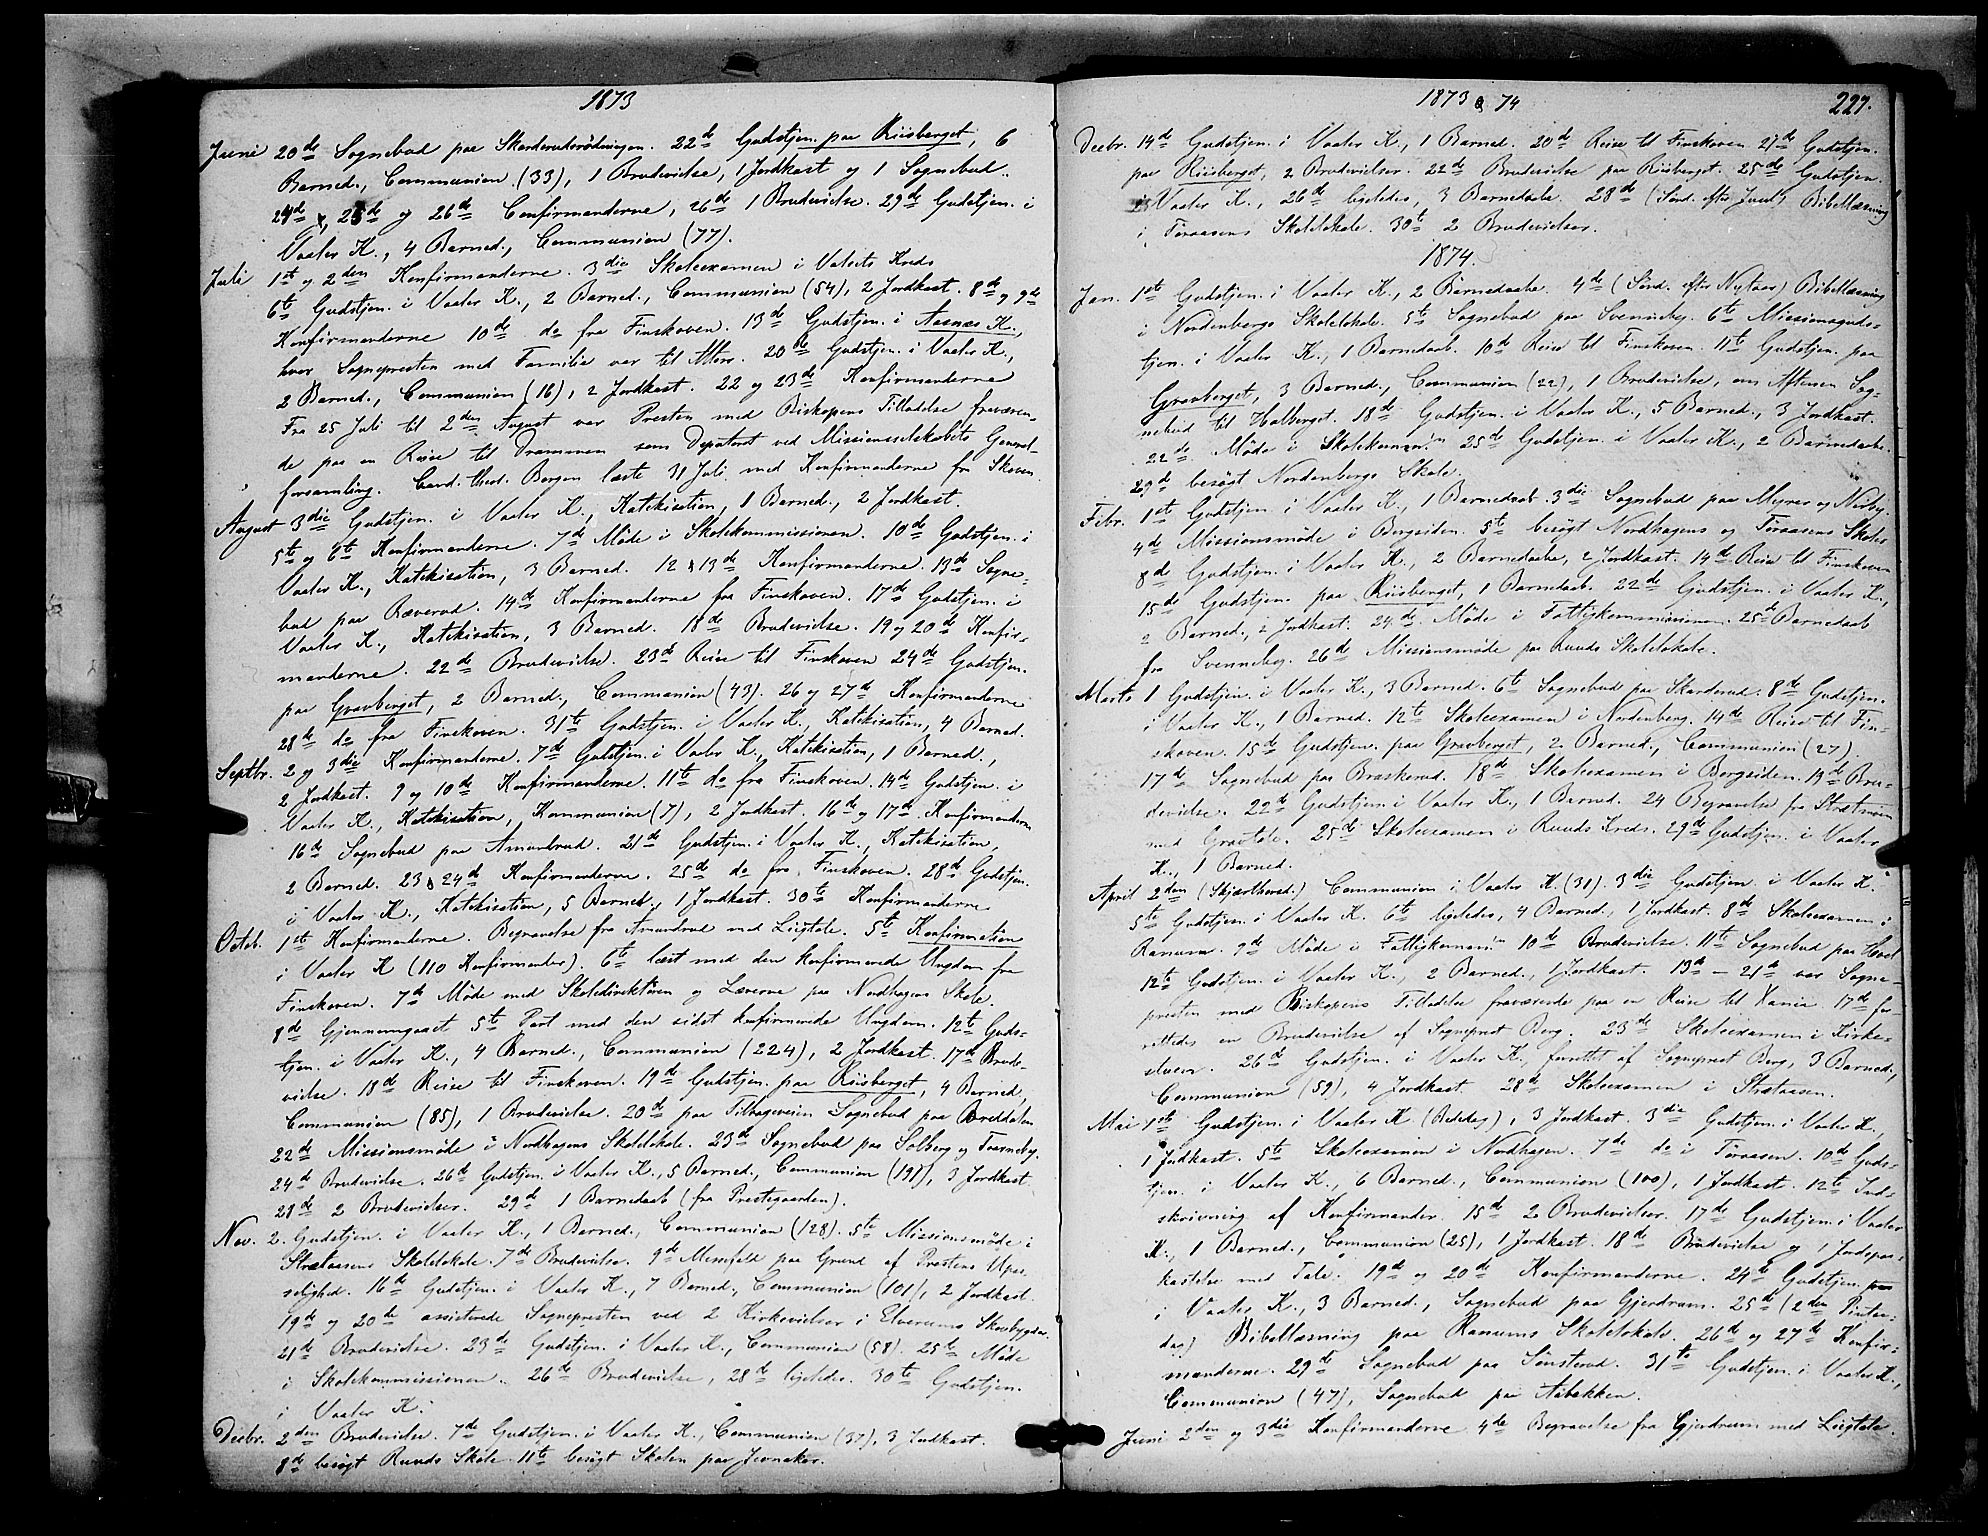 1873
Juni 20de Sognebud paa Skarderudrödningen. 22de Gudstjen. paa Riisberget, 6
Barned., Communion (33), 1 Brudevielse, 1 Jordkast og 1 Sognebud.
24de, 25de og 26de Confirmanderne, 26de 1 Brudevielse. 29de Gudstjen. i
Vaaler K., 4 Barned., Communion (77).
Juli 1ste og 2den Konfirmanderne. 3die Skoleexamen i Kreds
6te Gudstjen. i Vaaler K., 2 Barned., Communion (54), 2 Jordkast. 8de og 9de
Konfirmanderne 10de do fra Finskoven. 13de Gudstjen. i Aasnæs K.,
hvor Sognepresten med Familie var til Alters. 20de Gudstjen. i Vaaler K.,
2 Barned., Communion (16), 2 Jordkast. 22 og 23de Konfirmanderne
Fra 25 Juli til 2den August var Presten med Biskopens Tilladelse fraværen-
de paa en Reise til Drammen som Deputeret ved Missionsselskabets General-
forsamling. Cand. theol. Borgen læste 31 Juli med Konfirmanderne fra Skoven.
August 3die Gudstjen. i Vaaler K., Katekisation, 1 Barned., 2 Jordkast.
5te og 6te Konfirmanderne. 7de Möde i Skolekommissionen. 10de Gudstjen. i
Vaaler K., Katekisation, 3 Barned. 12 & 13de Konfirmanderne. 13de Sogne-
bud paa Ræverud. 14de Konfirmanderne fra Finskoven. 17de Gudstjen. i
Vaaler K., Katekisation, 3 Barned. 18de Brudevielse. 19 og 20de Konfir-
manderne. 22de Brudevielse. 23de Reise til Finskoven 24de Gudstjen.
paa Gravberget, 2 Barned., Communion (43). 26 og 27de Konfirmanderne
28de do fra Finskoven. 31te Gudstjen. i Vaaler K., Katekisation, 4 Barned.
Septbr. 2 og 3die Konfirmanderne. 7de Gudstjen. i Vaaler K., Katekisation, 1 Barned.,
2 Jordkast. 9 og 10de Konfirmanderne. 11te do fra Finskoven. 14de Gudstjen. i
Vaaler K., Katekisation, Kommunion (7), 2 Jordkast. 16de og 17de Konfirmanderne
16de Sognebud paa Amundrud. 21de Gudstjen. i Vaaler K., Katekisation,
2 Barned. 23 & 24de Konfirmanderne. 25de do fra Finskoven. 28de Gudstjen.
i Vaaler K., Katekisation, 5 Barned., 1 Jordkast. 30te Konfirmanderne
Octob. 1ste Konfirmanderne. Begravelse fra Amundrud med Liigtale. 5te Konfirmation
i Vaaler K (110 Konfirmander). 6te læst med den konfirmerede Ungdom fra
Finskoven. 7de Möde med Skoledirektören og Lærerne paa Nordhagens Skole.
8de Gjennemgaaet 5te Part med den sidst konfirmerede Ungdom. 12te Guds-
tjen. i Vaaler K., 4 Barned., Communion (224), 2 Jordkast. 17de Brude-
vielse. 18de Reise til Finskoven. 19de Gudstjen. paa Riisberget, 4 Barned,
Communion (85), 1 Brudevielse. 20de paa Tilbageveien Sognebud paa Breddalen.
22de Missionsmöde i Nordhagens Skolelokale. 23de Sognebud paa Solberg og Tveneby.
24de Brudevielse. 26de Gudstjen. i Vaaler K., 5 Barned., Communion (191), 3 Jordkast
28de 2 Brudevielser. 29de 1 Barnedaab (fra Prestegaarden).
Nov. 2. Gudstjen. i Vaaler K., 1 Barned., Communion (128). 5te Missionsmöde i
Strætaasens Skolelokale. 7de Brudevielse. 9de Messefald paa Grund af Prestens Upas-
selighed. 16de Gudstjen. i Vaaler K., 7 Barned., Communion (101), 2 Jordkast.
19de og 20de assisterede Sognepresten ved 2 Kirkevielser i Elverums Skovbygder.
21de Brudevielse. 23de Gudstjen. i Vaaler K., Communion (58). 25de Möde
i Skolekommissionen. 26de Brudevielse, 28de ligeledes. 30te Gudstjen.
i Vaaler K.
Decbr. 2den Brudevielse. 7de Gudstjen. i Vaaler K., Communion (37), 3 Jordkast.
8de besögt Ruuds Skole. 11te besögt Skolen paa Jevnaker.
1873 & 74
227.
Decbr. 14de Gudstjen. i Vaaler K., 1 Barned. 20de Reise til Finskoven 21de Gudstjen.
paa Riisberget, 2 Brudevielser. 22de Brudevielse paa Riisberget. 25de Gudstjen.
i Vaaler K., 26de ligeledes, 3 Barnedaabe. 28de (Sönd. efter Juul) Bibellæsning
i Toraasens Skolelokale. 30te 2 Brudevielser.
1874.
Jan. 1ste Gudstjen. i Vaaler K., 2 Barnedaabe. 4de (Sönd. efter Nytaar) Bibellæsning
i Nordenbergs Skolelokale. 5te Sognebud paa Svenneby. 6te Missionsguds-
tjen. i Vaaler K., 1 Barnedaab. 10de Reise til Finskoven. 11te Gudstjen. paa
Gravberget, 3 Barned., Communion (22), 1 Brudevielse, om Aftenen Sog-
nebud til Halberget. 18de Gudstjen. i Vaaler K., 5 Barned., 3 Jordkast.
22de Möde i Skolekomm. 25de Gudstjen. i Vaaler K., 2 Barnedaabe.
29de besögt Nordenbergs Skole.
Febr. 1ste Gudstjen. i Vaaler K., 1 Barnedaab. 3die Sognebud paa Myrer og Nerby.
4de Missionsmöde i Bergsiden. 5te besögt Nordhagens og Toraasens Skoler
8de Gudstjen. i Vaaler K., 2 Barnedaabe, 2 Jordkast. 14de Reise til Finskoven
15de Gudstjen. paa Riisberget, 1 Barnedaab. 22de Gudstjen. i Vaaler K.,
2 Barned., 2 Jordkast. 24de Möde i Fattigkommissionen. 25de Barnedaab
fra Svenneby. 26de Missionsmöde paa Ruuds Skolelokale.
Marts 1 Gudstjen. i Vaaler K., 3 Barned. 6te Sognebud paa Skarderud. 8de Gudstjen.
i Vaaler K., 1 Barned. 12te Skoleexamen i Nordenberg. 14de Reise til Fin-
skoven. 15de Gudstjen. paa Gravberget, 2 Barned., Communion (27)
17de Sognebud paa Braskerud. 18de Skoleexamen i Bergsiden. 19de Bru-
devielse. 22de Gudstjen. i Vaaler K., 1 Barned. 24 Begravelse fra
med Gravtale. 25de Skoleexamen i Ruuds Kreds. 29de Gudstjen. i Vaaler
K., 1 Barned.
April 2den (Skjærthorsd.) Communion i Vaaler K. (31). 3die Gudstjen. i Vaaler K.
5te Gudstjen. i Vaaler K. 6te ligeledes, 4 Barned., 1 Jordkast. 8de Skoleexamen i
Ranum. 9de Möde i Fattigkomm. 10de Brudevielse. 11te Sognebud paa Hoel
12te Gudstjen. i Vaaler K., 2 Barned., 1 Jordkast. 13de – 21de var Sogne-
presten med Biskopens Tilladelse fraværende paa en Reise til Xania. 17de for-
rettedes en Brudevielse af Sogneprest Berg. 23de Skoleexamen i Kirke-
skoven. 26de Gudstjen. i Vaaler K., forrettet af Sogneprest Berg, 3 Barned.,
Communion (59), 4 Jordkast. 28de Skoleexamen i Strætaasen.
Mai 1ste Gudstjen. i Vaaler K. (Bededag), 3 Jordkast. 3die Gudstjen. i Vaaler K.,
1 Jordkast. 5te Skoleexamen i Nordhagen. 7de do i Toraasen. 10de Guds-
tjen. i Vaaler K., 6 Barned., Communion (100), 1 Jordkast. 12te Ind-
skrivning af Konfirmander. 15de 2 Brudevielser. 17de Gudstjen. i Vaaler
K., 1 Barned., Communion (25), 1 Jordkast. 18de Brudevielse og 1 Jordspaa-
kastelse med Tale. 19de og 20de Konfirmanderne. 24de Gudstjen. paa
i Vaaler K., 3 Barned., Sognebud paa Gjerdrum. 25de (2den Pintse-
dag) Bibellæsning paa Ranums Skolelokale. 26de og 27de Konfir-
manderne. 29de Sognebud paa Sönsterud. 31te Gudstjen. i Vaaler K.,
Communion (47), Sognebud paa Aabakken.
Juni 2den og 3die Konfirmanderne 4de Begravelse fra Gjerdrum med Liigtale.